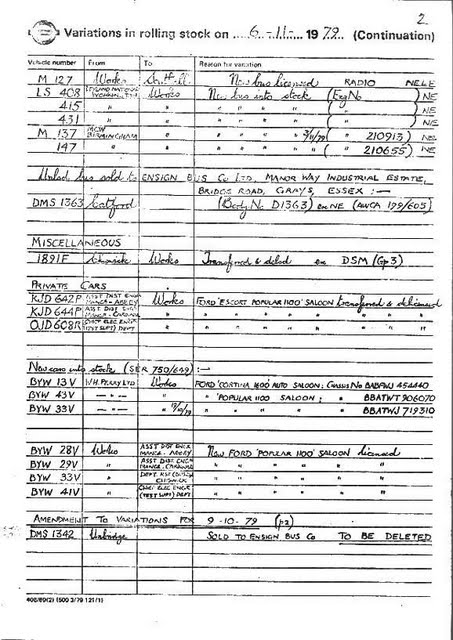 2
Variations in rolling stock on 6-11- 1979 (Continuation)
Vehicle number From To Reason for variation
M 127 Works New bus licensed RADIO NELE
LS 408 Works New bus into stock (Eng No ) NE
415 " " " " " ) NE
431 " " " " " ) NE
M 137 MCW BIRMINGHAM " " " " ( 210913) NE
147 " " " " " ( 210655) NE
bus sold to ENSIGN BUS Co LTD, MANOR WAY INDUSTRIAL ESTATE,
BRIDGE ROAD, GRAYS, ESSEX :—
DMS 1363 Catford (Body No D1363) ex NE (AWCA 199/605)
MISCELLANEOUS
1891F Chiswick Works Transferred & delicd ex DSM (Gp3)
PRIVATE CARS
KJD 642P ASST DIST ENGR MANGR - ABBEY Works FORD 'ESCORT POPULAR 1100' SALOON transferred & delicenced
KJD 644P ASST DIST ENGR " " " " " " "
OJD 608R CHIEF ELEC ENGR (TEST SUPT) DEPT " " " " " " "
New cars into stock (SER 750/649) :—
BYW 13V W.H. PERRY LTD Works FORD 'CORTINA 1600' AUTO SALOON; CHASSIS No 454440
BYW 43V — " — " " 'POPULAR 1100 SALOON; " BBATWT 906070
BYW 33V — " — " " " " " BBATWJ 719310
BYW 28V Works ASST DIST ENGR MANGR - ABBEY New FORD 'POPULAR 1100' SALOON licensed
BYW 29V " ASST DIST ENGR " " " " "
BYW 33V " CHISWICK " " " " "
BYW 41V " CHIEF ELEC ENGR (TEST SUPT) DEPT " " " " "
AMENDMENT TO VARIATIONS FOR 9-10-79 (p2)
DMS 1342 Uxbridge SOLD TO ENSIGN BUS Co TO BE DELETED
408/89(2) (500 3/79 121/1)